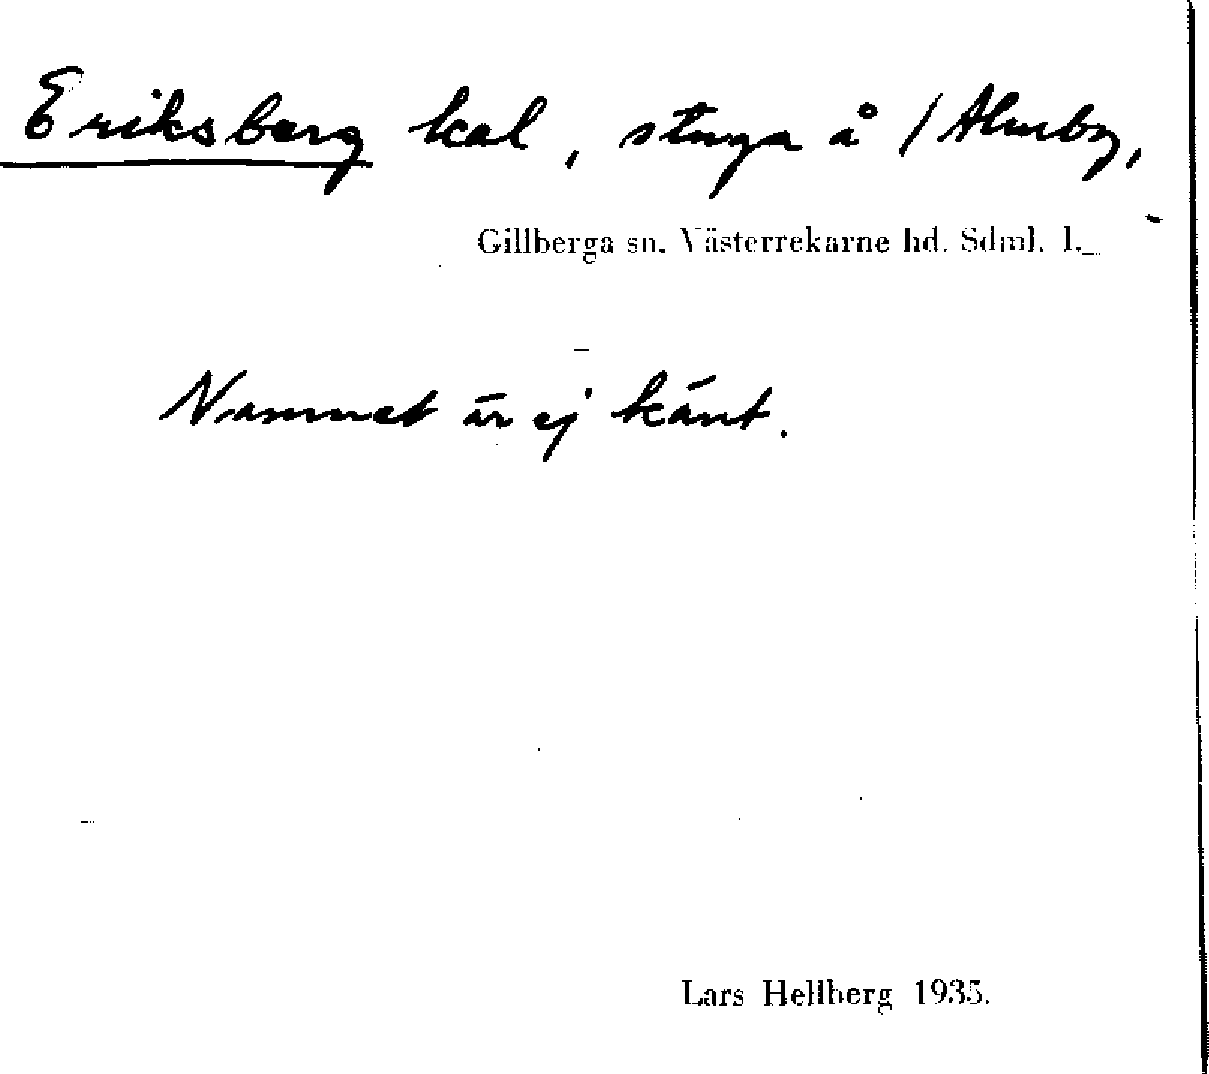 Eriksberg kal, stuga å / Almby,
Gillberga sn. Västerrekarne hd. Sdml. l.
Namnet är ej känt.
Lars Hellberg 1935.